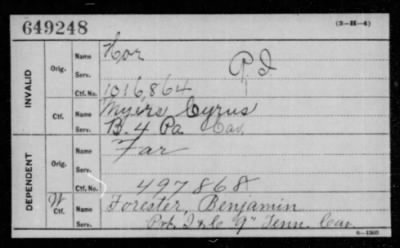 649248
(3—H—4)
INVALID
Orig.
Name
Hor
Serv.
P. I
Ctf. No.
1016,864
Ctf.
Name
Myers Cyrus
Serv.
B. 4 Pa Cav.
DEPENDENT
Orig.
Name
Far
Serv.
Ctf. No.
497868
W
Ctf.
Name
Forester, Benjamin
Serv.
Pvt. I & C 9" Tenn. Cav.
6—1303